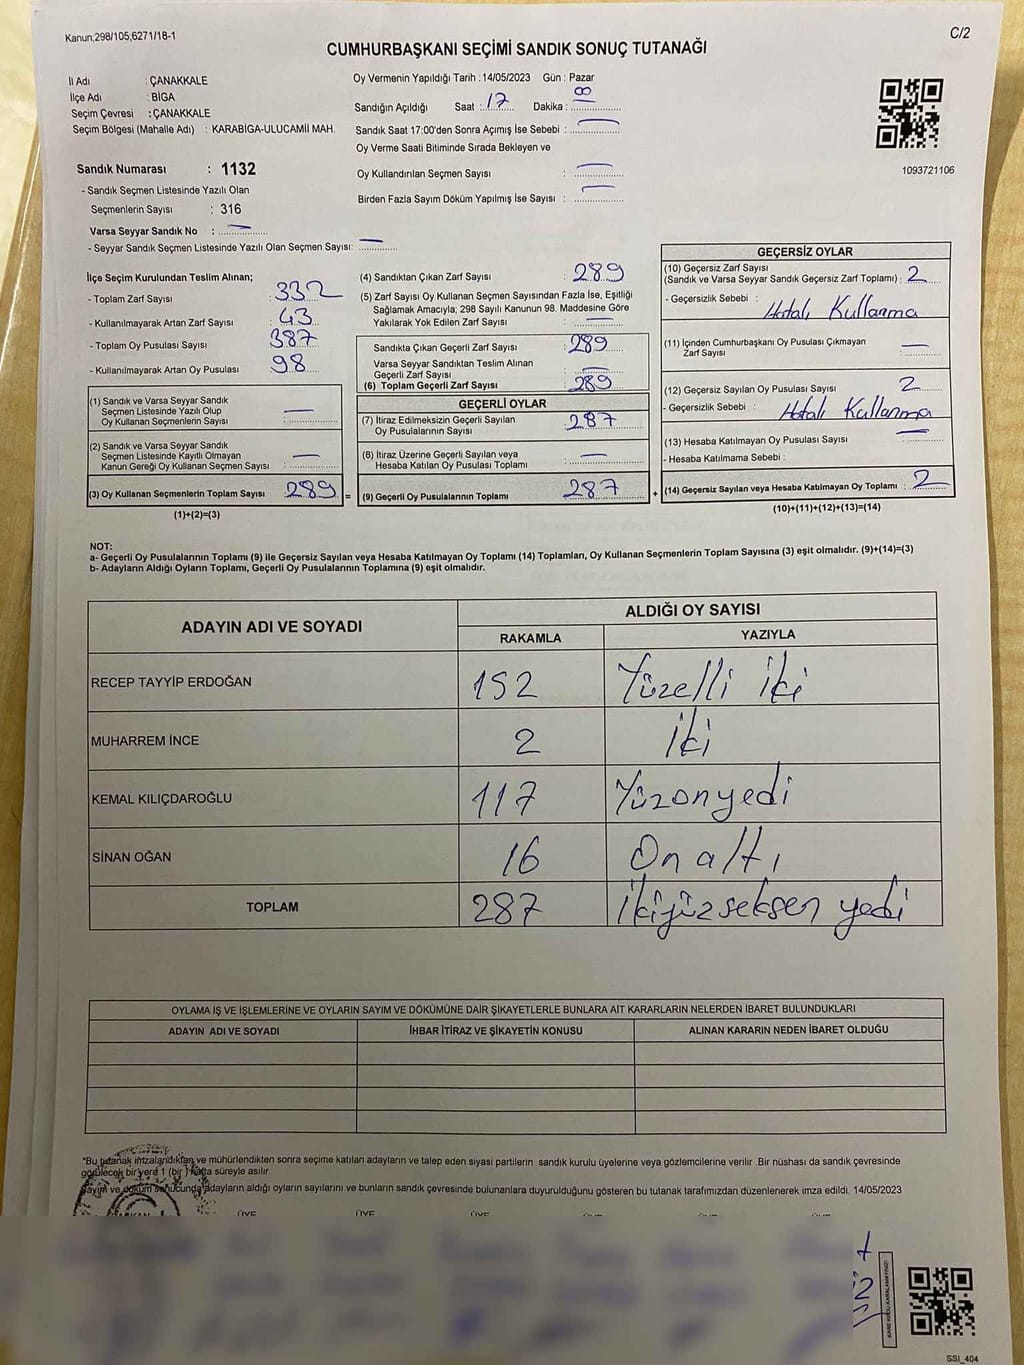 Kanun,298/105,6271/18-1
C/2
CUMHURBAŞKANI SEÇİMİ SANDIK SONUÇ TUTANAĞI
İl Adı : ÇANAKKALE
İlçe Adı : BİGA
Seçim Çevresi : ÇANAKKALE
Seçim Bölgesi (Mahalle Adı) : KARABİGA-ULUCAMİİ MAH.
Oy Vermenin Yapıldığı Tarih : 14/05/2023 Gün : Pazar
Sandığın Açıldığı Saat : 17 Dakika : 00
Sandık Saat 17:00'den Sonra Açımış İse Sebebi : —
Oy Verme Saati Bitiminde Sırada Bekleyen ve
Oy Kullandırılan Seçmen Sayısı : —
Birden Fazla Sayım Döküm Yapılmış İse Sayısı : —
1093721106
Sandık Numarası : 1132
- Sandık Seçmen Listesinde Yazılı Olan
Seçmenlerin Sayısı : 316
Varsa Seyyar Sandık No : —
- Seyyar Sandık Seçmen Listesinde Yazılı Olan Seçmen Sayısı: —
İlçe Seçim Kurulundan Teslim Alınan;
- Toplam Zarf Sayısı : 332
- Kullanılmayarak Artan Zarf Sayısı : 43
- Toplam Oy Pusulası Sayısı : 387
- Kullanılmayarak Artan Oy Pusulası : 98
(1) Sandık ve Varsa Seyyar Sandık
Seçmen Listesinde Yazılı Olup
Oy Kullanan Seçmenlerin Sayısı : —
(2) Sandık ve Varsa Seyyar Sandık
Seçmen Listesinde Kayıtlı Olmayan
Kanun Gereği Oy Kullanan Seçmen Sayısı : —
(3) Oy Kullanan Seçmenlerin Toplam Sayısı : 289 =
(1)+(2)=(3)
(4) Sandıktan Çıkan Zarf Sayısı : 289
(5) Zarf Sayısı Oy Kullanan Seçmen Sayısından Fazla İse, Eşitliği
Sağlamak Amacıyla; 298 Sayılı Kanunun 98. Maddesine Göre
Yakılarak Yok Edilen Zarf Sayısı : —
Sandıkta Çıkan Geçerli Zarf Sayısı : 289
Varsa Seyyar Sandıktan Teslim Alınan
Geçerli Zarf Sayısı : —
(6) Toplam Geçerli Zarf Sayısı : 289
GEÇERLİ OYLAR
(7) İtiraz Edilmeksizin Geçerli Sayılan
Oy Pusulalarının Sayısı : 287
(8) İtiraz Üzerine Geçerli Sayılan veya
Hesaba Katılan Oy Pusulası Toplamı : —
(9) Geçerli Oy Pusulalarının Toplamı : 287 +
GEÇERSİZ OYLAR
(10) Geçersiz Zarf Sayısı
(Sandık ve Varsa Seyyar Sandık Geçersiz Zarf Toplamı) : 2
- Geçersizlik Sebebi : Hatalı Kullanma
(11) İçinden Cumhurbaşkanı Oy Pusulası Çıkmayan
Zarf Sayısı : —
(12) Geçersiz Sayılan Oy Pusulası Sayısı : 2
- Geçersizlik Sebebi : Hatalı Kullanma
(13) Hesaba Katılmayan Oy Pusulası Sayısı : —
- Hesaba Katılmama Sebebi :
(14) Geçersiz Sayılan veya Hesaba Katılmayan Oy Toplamı : 2
(10)+(11)+(12)+(13)=(14)
NOT:
a- Geçerli Oy Pusulalarının Toplamı (9) ile Geçersiz Sayılan veya Hesaba Katılmayan Oy Toplamı (14) Toplamları, Oy Kullanan Seçmenlerin Toplam Sayısına (3) eşit olmalıdır. (9)+(14)=(3)
b- Adayların Aldığı Oyların Toplamı, Geçerli Oy Pusulalarının Toplamına (9) eşit olmalıdır.
ADAYIN ADI VE SOYADI ALDIĞI OY SAYISI
RAKAMLA YAZIYLA
RECEP TAYYİP ERDOĞAN 152 Yüzelli iki
MUHARREM İNCE 2 iki
KEMAL KILIÇDAROĞLU 117 Yüzonyedi
SİNAN OĞAN 16 On altı
TOPLAM 287 İkiyüzseksen yedi
OYLAMA İŞ VE İŞLEMLERİNE VE OYLARIN SAYIM VE DÖKÜMÜNE DAİR ŞİKAYETLERLE BUNLARA AİT KARARLARIN NELERDEN İBARET BULUNDUKLARI
ADAYIN ADI VE SOYADI İHBAR İTİRAZ VE ŞİKAYETİN KONUSU ALINAN KARARIN NEDEN İBARET OLDUĞU
*Bu tutanak imzalandıktan ve mühürlendikten sonra seçime katılan adayların ve talep eden siyasi partilerin sandık kurulu üyelerine veya gözlemcilerine verilir .Bir nüshası da sandık çevresinde
görülecek bir yere 1 (bir ) hafta süreyle asılır.
Sayım ve döküm sonucunda adayların aldığı oyların sayılarını ve bunların sandık çevresinde bulunanlara duyurulduğunu gösteren bu tutanak tarafımızdan düzenlenerek imza edildi. 14/05/2023
BAŞKAN ÜYE ÜYE ÜYE
KARE KODU KARALAMAYINIZ!
SSI_404